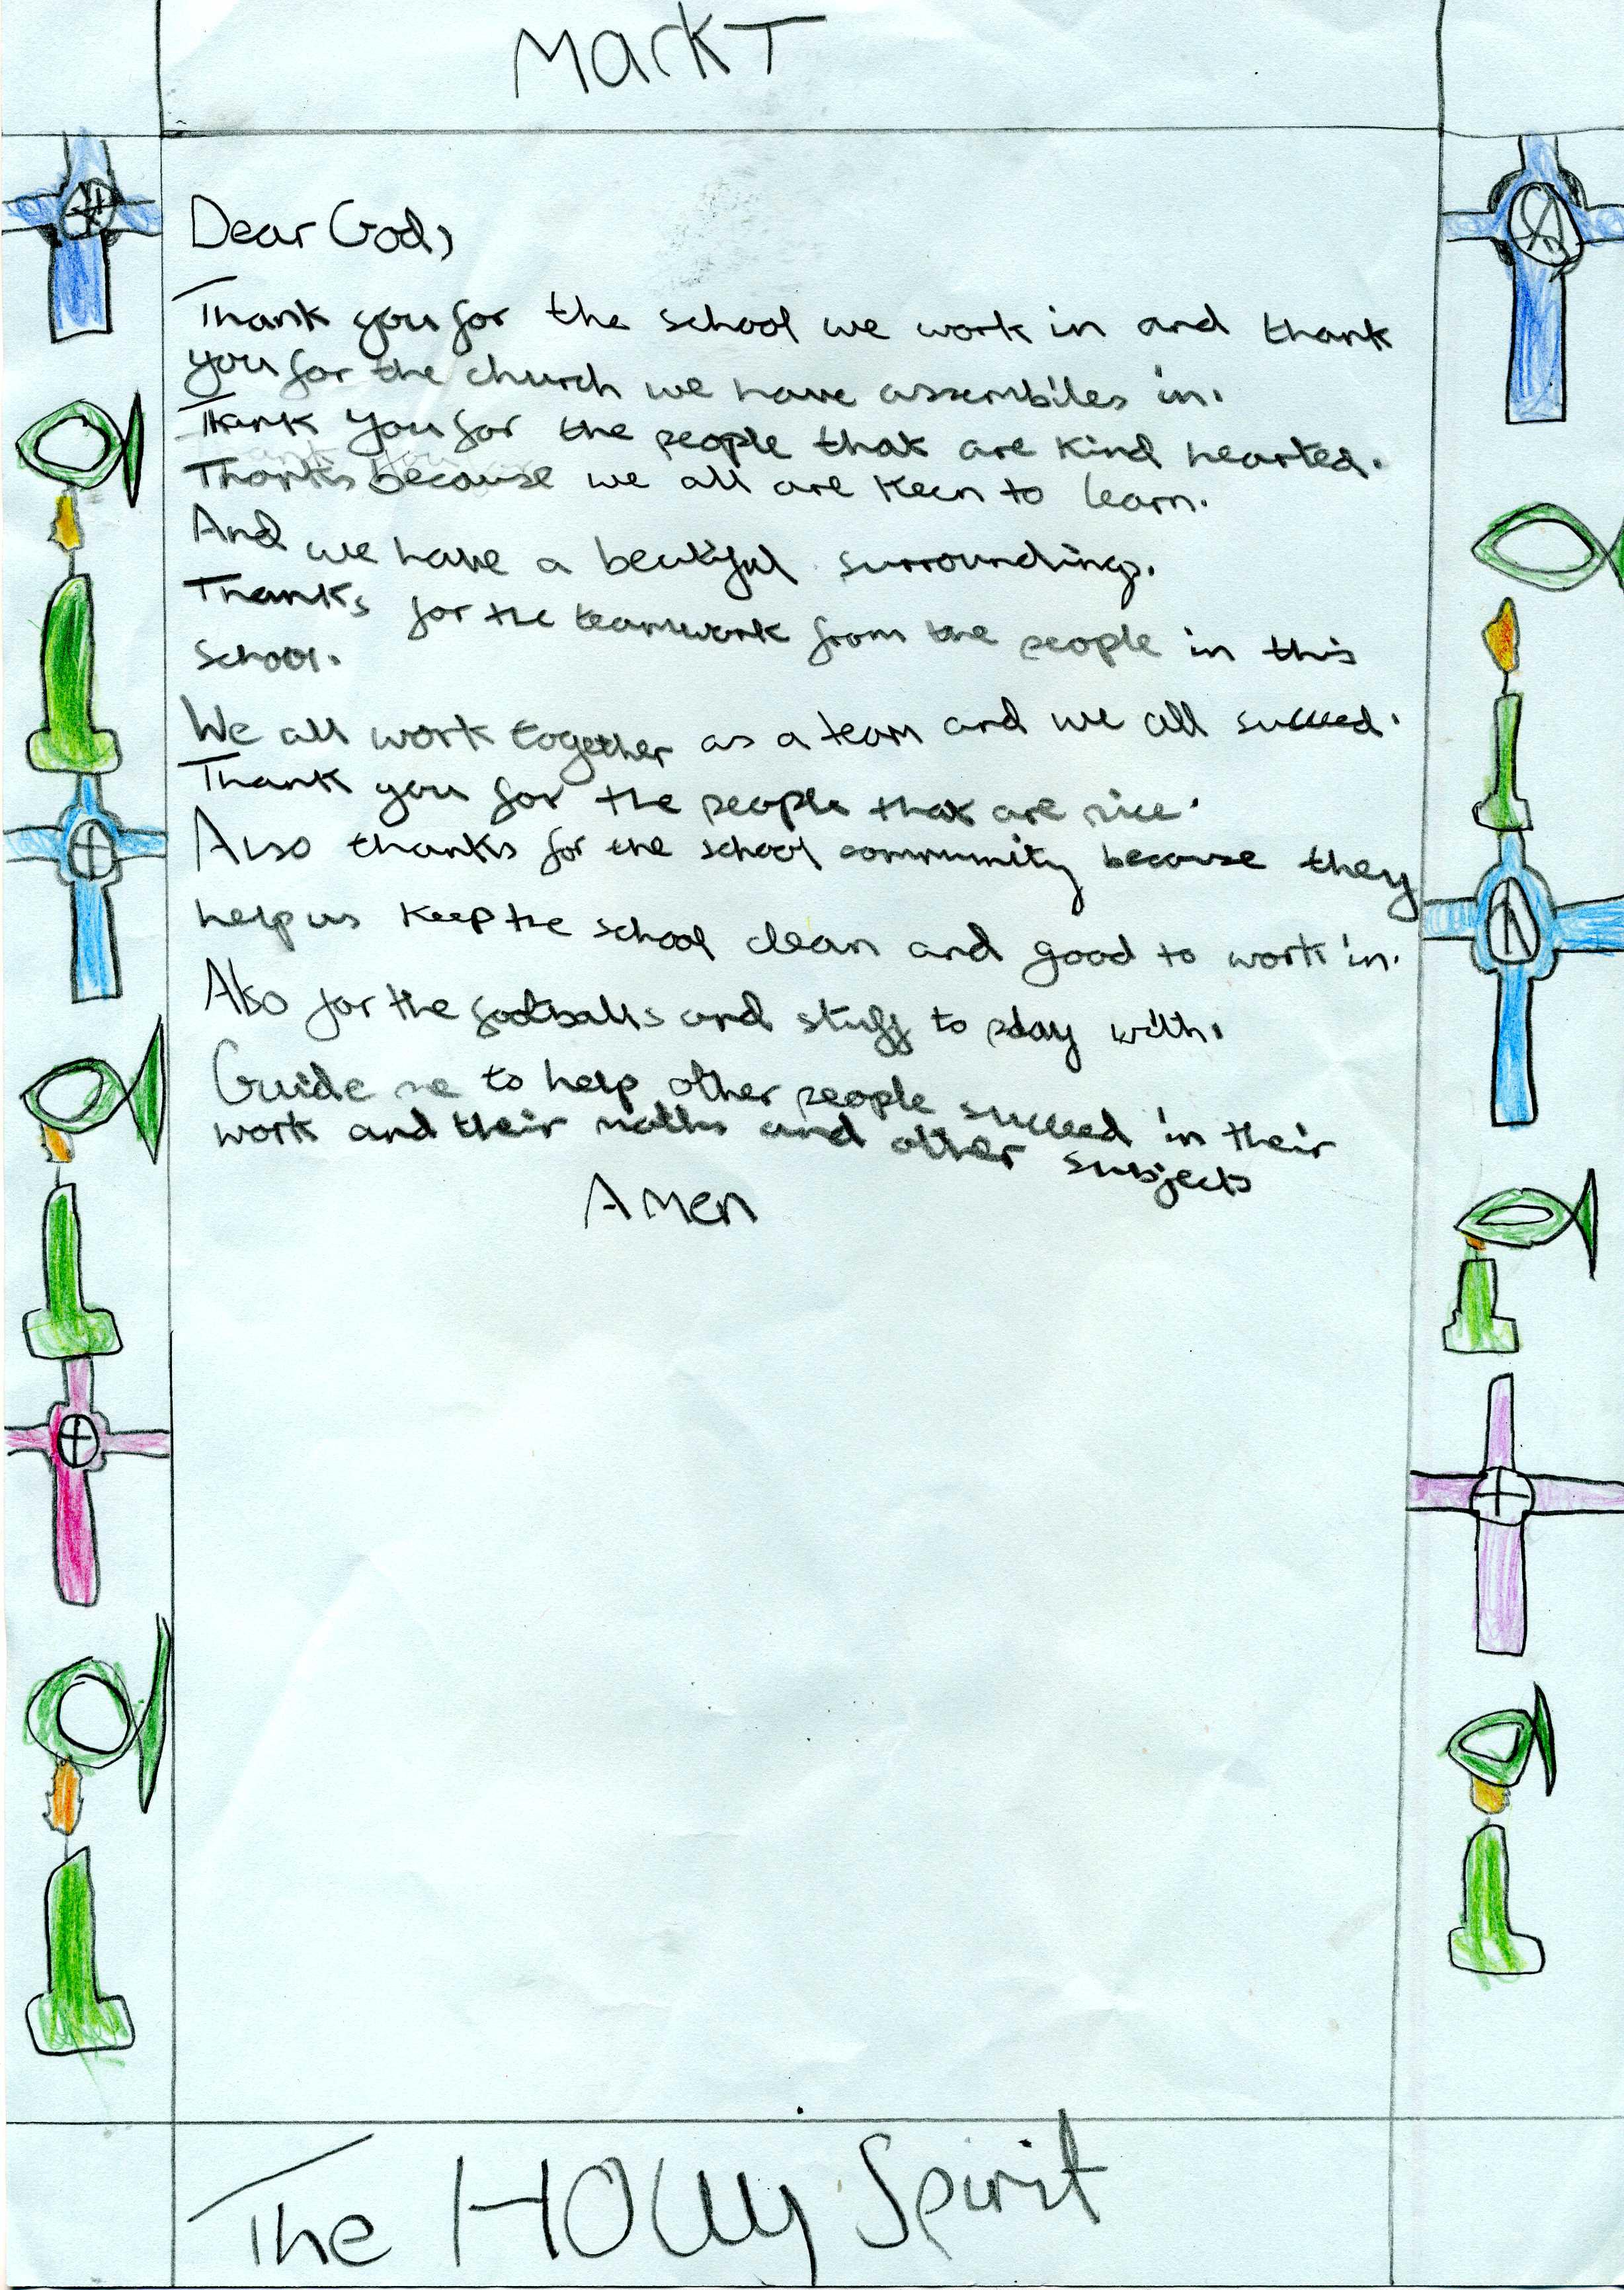 Mark T
Dear God,
Thank you for the school we work in and thank
you for the church we have assembiles in.
Thank you for the people that are kind hearted.
Thanks because we all are keen to learn.
And we have a beutiful surroundings.
Thanks for the teamwork from the people in this
school.
We all work together as a team and we all succeed.
Thank you for the people that are nice.
Also thanks for the school community because they
help us keep the school clean and good to work in.
Also for the footballs and stuff to play with.
Guide me to help other people succeed in their
work and their maths and other subjects
Amen
The HOlly Spirit